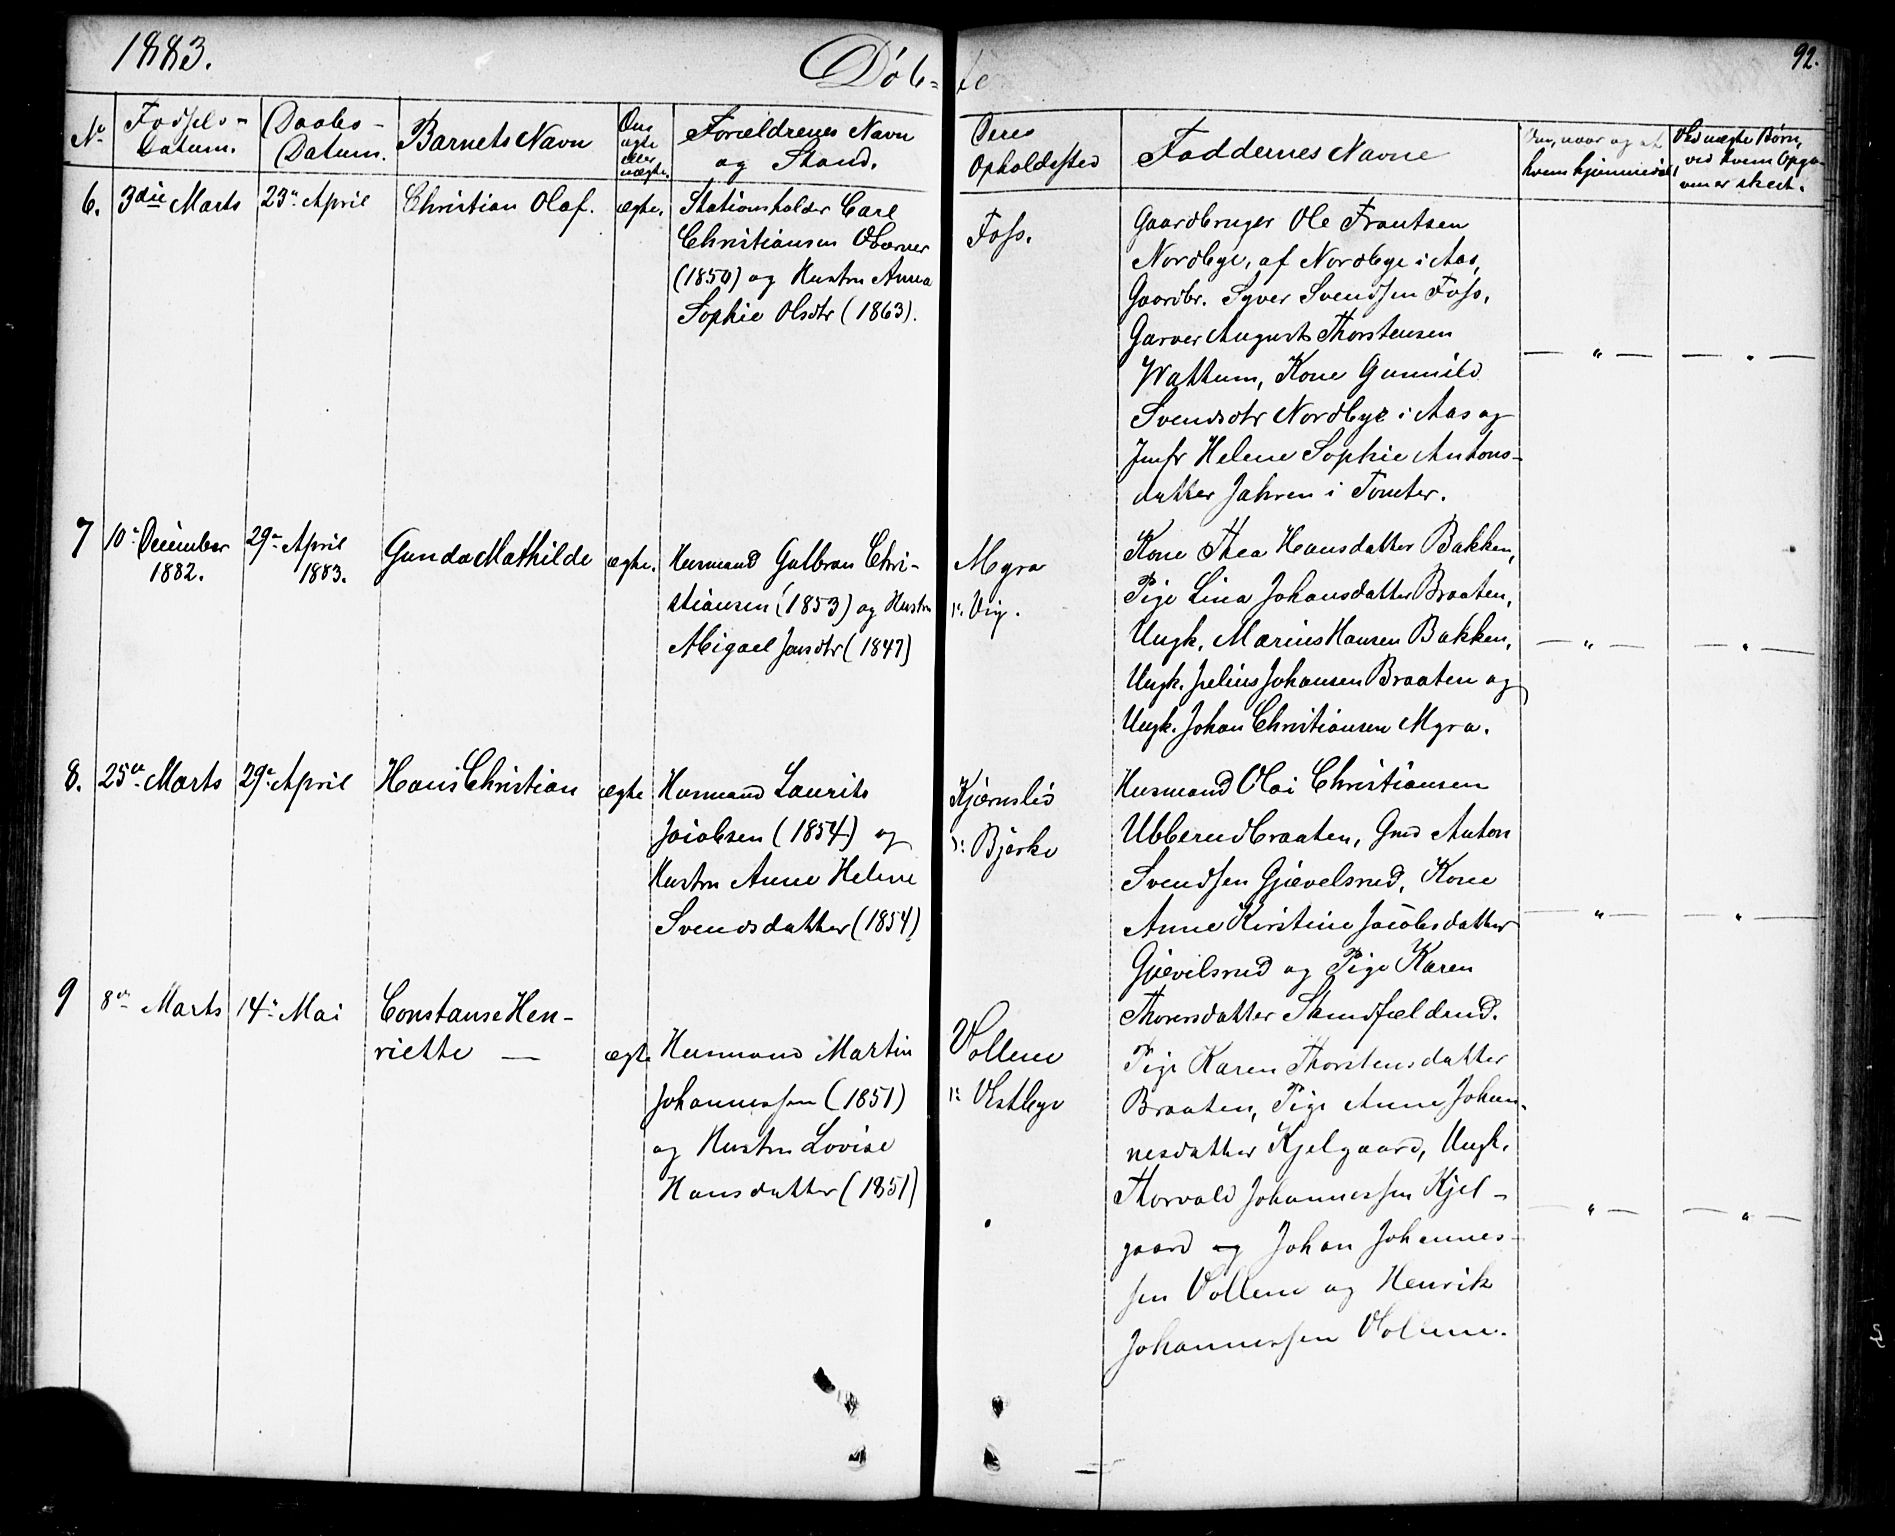 1883.
Döb-te
92.
No
Fødsels-
Datum.
Daabs-
Datum.
Barnets Navn
Om
ægte
eller
uægte.
Forældrenes Navn
og Stand.
Deres
Opholdssted
Faddernes Navne
Om, naar og af
hvem hjemmedøbt
Ved uægte Børn,
ved hvem Opga-
ven er skeet.
6.
3die Marts
23de April
Christian Olaf.
ægte.
Stationsholder Carl
Christiansen
(1850) og Hustru Anna
Sophie Olsdtr (1863).
Foss.
Gaardbruger Ole Frantsen
Nordbye, af Nordbye i Aas,
Gaardbr. Syver Svendsen Foss,
Garver August Thorstensen
Wattum, Kone Gunnild
Svendsdtr Nordbye i Aas og
Jmfr Helene Sophie Antons-
datter Jahren i Tomter.
— " —
— " —
7
10de December
1882.
29de April
1883.
Gunda Mathilde
ægte.
Husmand Gulbran Chri-
stiansen (1853) og Hustru
Abigael Jonsdtr (1847)
Myra
u: Vig.
Kone Thea Hansdatter Bakken,
Pige Lina Johansdatter Braaten,
Ungk. Marius Hansen Bakken,
Ungk. Julius Johansen Braaten og
Ungk. Johan Christiansen Myra.
— " —
— " —
8.
25de Marts
29de April
Hans Christian
ægte
Husmand Laurits
Jacobsen (1854) og
Hustru Anne Helene
Svendsdatter (1854)
Kjærnslid
u: Bjerke
Husmand Olai Christiansen
Ubberudbraaten, Gmd Anton
Svendsen Gjævelsrud, Kone
Anne Kirstine Jacobsdatter
Gjævelsrud og Pige Karen
Thorersdatter
— " —
— " —
9
8de Marts
14de Mai
Constanse Hen-
riette —
ægte
Husmand Martin
Johannessen (1851)
og Hustru Lovise
Hansdatter (1851)
Vollene
u: Vestbye
Pige Karen Thorstensdatter
Braaten, Pige Anne Johan-
nesdatter Kjelgaard, Ungk.
Thorvald Johannessen Kjel-
gaard og Johan Johannes-
sen Vollene og Henrik
Johannessen Vollene.
— " —
— " —